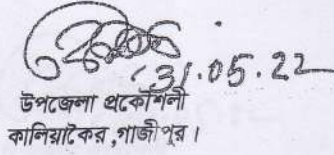 31.05.22
উপজেলা প্রকৌশলী
কালিয়াকৈর,গাজীপুর।